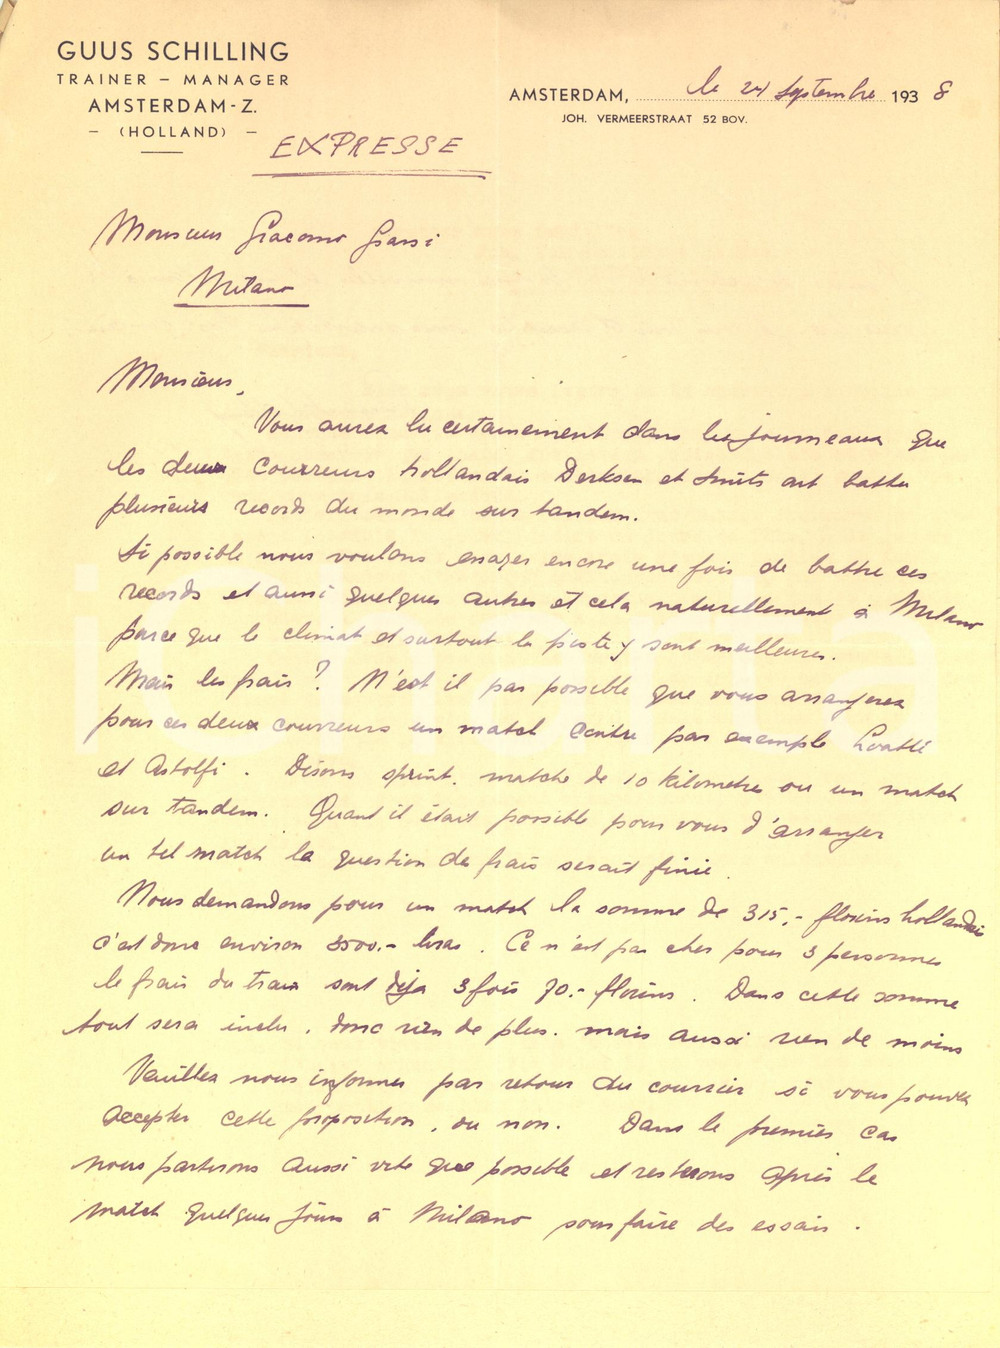 GUUS SCHILLING
TRAINER – MANAGER
AMSTERDAM-Z.
– (HOLLAND) –
AMSTERDAM, le 24 Septembre 1938
JOH. VERMEERSTRAAT 52 BOV.
EXPRESSE
Monsieur Giacomo Grassi
Milano
Monsieur,
Vous aurez lu certainement dans les journeaux que
les deux coureurs hollandais Derksen et Smits ont battu
plusieurs records du monde sur tandem.
Si possible nous voulons essayer encore une fois de battre ces
records et aussi quelques autres et cela naturellement à Milano
parce que le climat et surtout la piste y sont meilleures.
Mais les frais ? N'est il pas possible que vous arrangerez
pour ces deux coureurs un match contre par exemple Loatti
et Astolfi . Disons sprint, matche de 10 kilometres ou un match
sur tandem. Quant il était possible pour vous d'arranger
un tel match la question de frais serait finie .
Nous demandons pour un match la somme de 315,- florins hollandais
c'est donc environ 3500.- liras . Ce n'est pas cher pour 3 personnes
le frais du train sont déja 3 fois 70.- florins . Dans cette somme
tout sera inclu , donc rien de plus . mais aussi rien de moins
Veuillez nous informer par retour du courrier si vous pouvez
accepter cette proposition , ou non. Dans le premier cas
nous partirons aussi vite que possible et resterons après le
match quelques jours à Milano pour faire des essais .